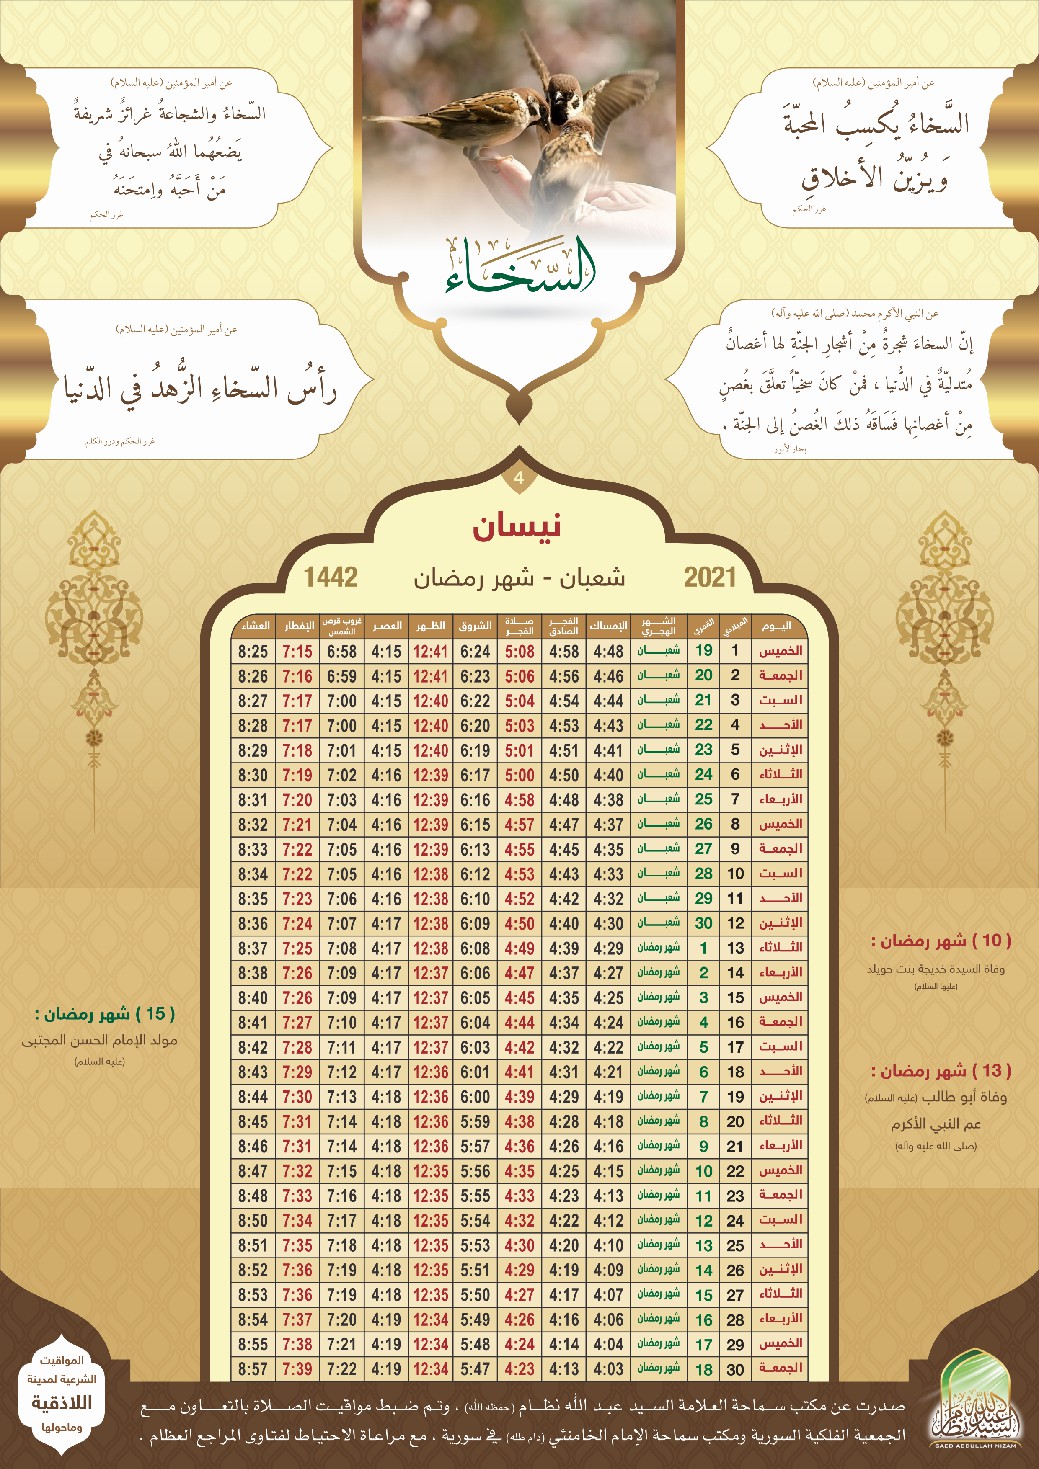 عن أمير المؤمنين (عليه السلام)
السَّخاءُ يُكسِبُ المحبّةَ
وَيُزيّنُ الأخلاقِ
غرر الحكم
عن أمير المؤمنين (عليه السلام)
السّخاءُ والشجاعةُ غرائزُ شريفةٌ
يَضعُهُما اللهُ سبحانهُ في
مَنْ أحَبَّهُ وامتحَنَهُ
غرر الحكم
السّخاء
عن النبي الأكرم محمد (صلى الله عليه وآله)
إنّ السخاءَ شجرةٌ مِنْ أشجارِ الجنّةِ لها أغصانٌ
مُتدليّةٌ في الدُّنيا ، فمْن كانَ سخيّاً تعلّقَ بغُصنٍ
مِنْ أغصانِها فَسَاقَهُ ذلكَ الغُصنُ إلى الجنّة .
بحار الأنوار
عن أمير المؤمنين (عليه السلام)
رأسُ السّخاءِ الزُّهدُ في الدّنيا
غرر الحكم ودرر الكلم
4
نيسان
2021 شعبان - شهر رمضان 1442
اليوم الميلادي القمري الشهر الهجري الإمساك الفجر الصادق صلاة الفجر الشروق الظهر العصر غروب قرص الشمس الإفطار العشاء
الخميس 1 19 شعبان 4:48 4:58 5:08 6:24 12:41 4:15 6:58 7:15 8:25
الجمعة 2 20 شعبان 4:46 4:56 5:06 6:23 12:41 4:15 6:59 7:16 8:26
السبت 3 21 شعبان 4:44 4:54 5:04 6:22 12:40 4:15 7:00 7:17 8:27
الأحد 4 22 شعبان 4:43 4:53 5:03 6:20 12:40 4:15 7:00 7:17 8:28
الإثنين 5 23 شعبان 4:41 4:51 5:01 6:19 12:40 4:15 7:01 7:18 8:29
الثلاثاء 6 24 شعبان 4:40 4:50 5:00 6:17 12:39 4:16 7:02 7:19 8:30
الأربعاء 7 25 شعبان 4:38 4:48 4:58 6:16 12:39 4:16 7:03 7:20 8:31
الخميس 8 26 شعبان 4:37 4:47 4:57 6:15 12:39 4:16 7:04 7:21 8:32
الجمعة 9 27 شعبان 4:35 4:45 4:55 6:13 12:39 4:16 7:05 7:22 8:33
السبت 10 28 شعبان 4:33 4:43 4:53 6:12 12:38 4:16 7:05 7:22 8:34
الأحد 11 29 شعبان 4:32 4:42 4:52 6:10 12:38 4:16 7:06 7:23 8:35
الإثنين 12 30 شعبان 4:30 4:40 4:50 6:09 12:38 4:17 7:07 7:24 8:36
الثلاثاء 13 1 شهر رمضان 4:29 4:39 4:49 6:08 12:38 4:17 7:08 7:25 8:37
الأربعاء 14 2 شهر رمضان 4:27 4:37 4:47 6:06 12:37 4:17 7:09 7:26 8:38
الخميس 15 3 شهر رمضان 4:25 4:35 4:45 6:05 12:37 4:17 7:09 7:26 8:40
الجمعة 16 4 شهر رمضان 4:24 4:34 4:44 6:04 12:37 4:17 7:10 7:27 8:41
السبت 17 5 شهر رمضان 4:22 4:32 4:42 6:03 12:37 4:17 7:11 7:28 8:42
الأحد 18 6 شهر رمضان 4:21 4:31 4:41 6:01 12:36 4:17 7:12 7:29 8:43
الإثنين 19 7 شهر رمضان 4:19 4:29 4:39 6:00 12:36 4:18 7:13 7:30 8:44
الثلاثاء 20 8 شهر رمضان 4:18 4:28 4:38 5:59 12:36 4:18 7:14 7:31 8:45
الأربعاء 21 9 شهر رمضان 4:16 4:26 4:36 5:57 12:36 4:18 7:14 7:31 8:46
الخميس 22 10 شهر رمضان 4:15 4:25 4:35 5:56 12:35 4:18 7:15 7:32 8:47
الجمعة 23 11 شهر رمضان 4:13 4:23 4:33 5:55 12:35 4:18 7:16 7:33 8:48
السبت 24 12 شهر رمضان 4:12 4:22 4:32 5:54 12:35 4:18 7:17 7:34 8:50
الأحد 25 13 شهر رمضان 4:10 4:20 4:30 5:53 12:35 4:18 7:18 7:35 8:51
الإثنين 26 14 شهر رمضان 4:09 4:19 4:29 5:51 12:35 4:18 7:19 7:36 8:52
الثلاثاء 27 15 شهر رمضان 4:07 4:17 4:27 5:50 12:35 4:18 7:19 7:36 8:53
الأربعاء 28 16 شهر رمضان 4:06 4:16 4:26 5:49 12:34 4:19 7:20 7:37 8:54
الخميس 29 17 شهر رمضان 4:04 4:14 4:24 5:48 12:34 4:19 7:21 7:38 8:55
الجمعة 30 18 شهر رمضان 4:03 4:13 4:23 5:47 12:34 4:19 7:22 7:39 8:57
( 10 ) شهر رمضان :
وفاة السيدة خديجة بنت خويلد
(عليها السلام)
( 13 ) شهر رمضان :
وفاة أبو طالب (عليه السلام)
عم النبي الأكرم
(صلى الله عليه وآله)
( 15 ) شهر رمضان :
مولد الإمام الحسن المجتبى
(عليه السلام)
المواقيت
الشرعية لمدينة
اللاذقية
وماحولها
صدرت عن مكتب سماحة العلامة السيد عبد الله نظام (حفظه الله) ، وتم ضبط مواقيت الصلاة بالتعاون مع
الجمعية الفلكية السورية ومكتب سماحة الإمام الخامنئي (دام ظله) في سورية ، مع مراعاة الاحتياط لفتاوى المراجع العظام .
السيد عبد الله نظام
SAED ABDULLAH NIZAM